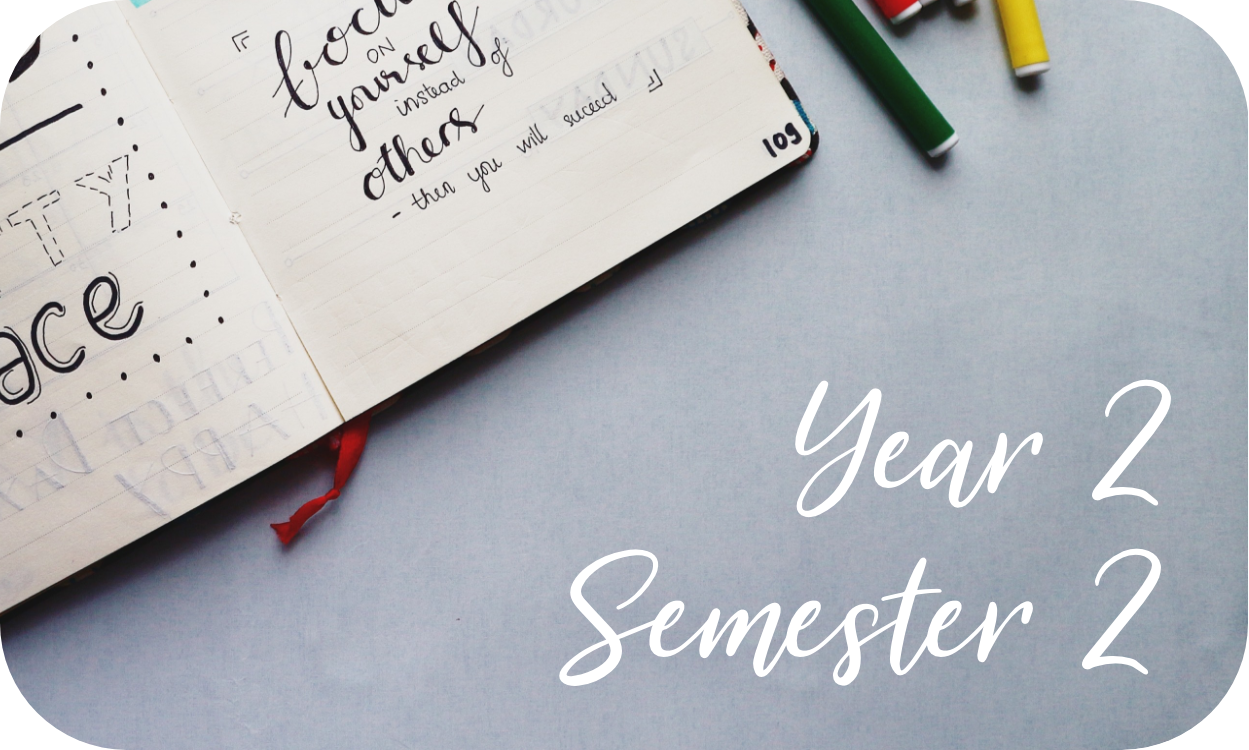 TY
ace
ON
yourself
instead of
others
- then you will suceed
109
Year 2
Semester 2